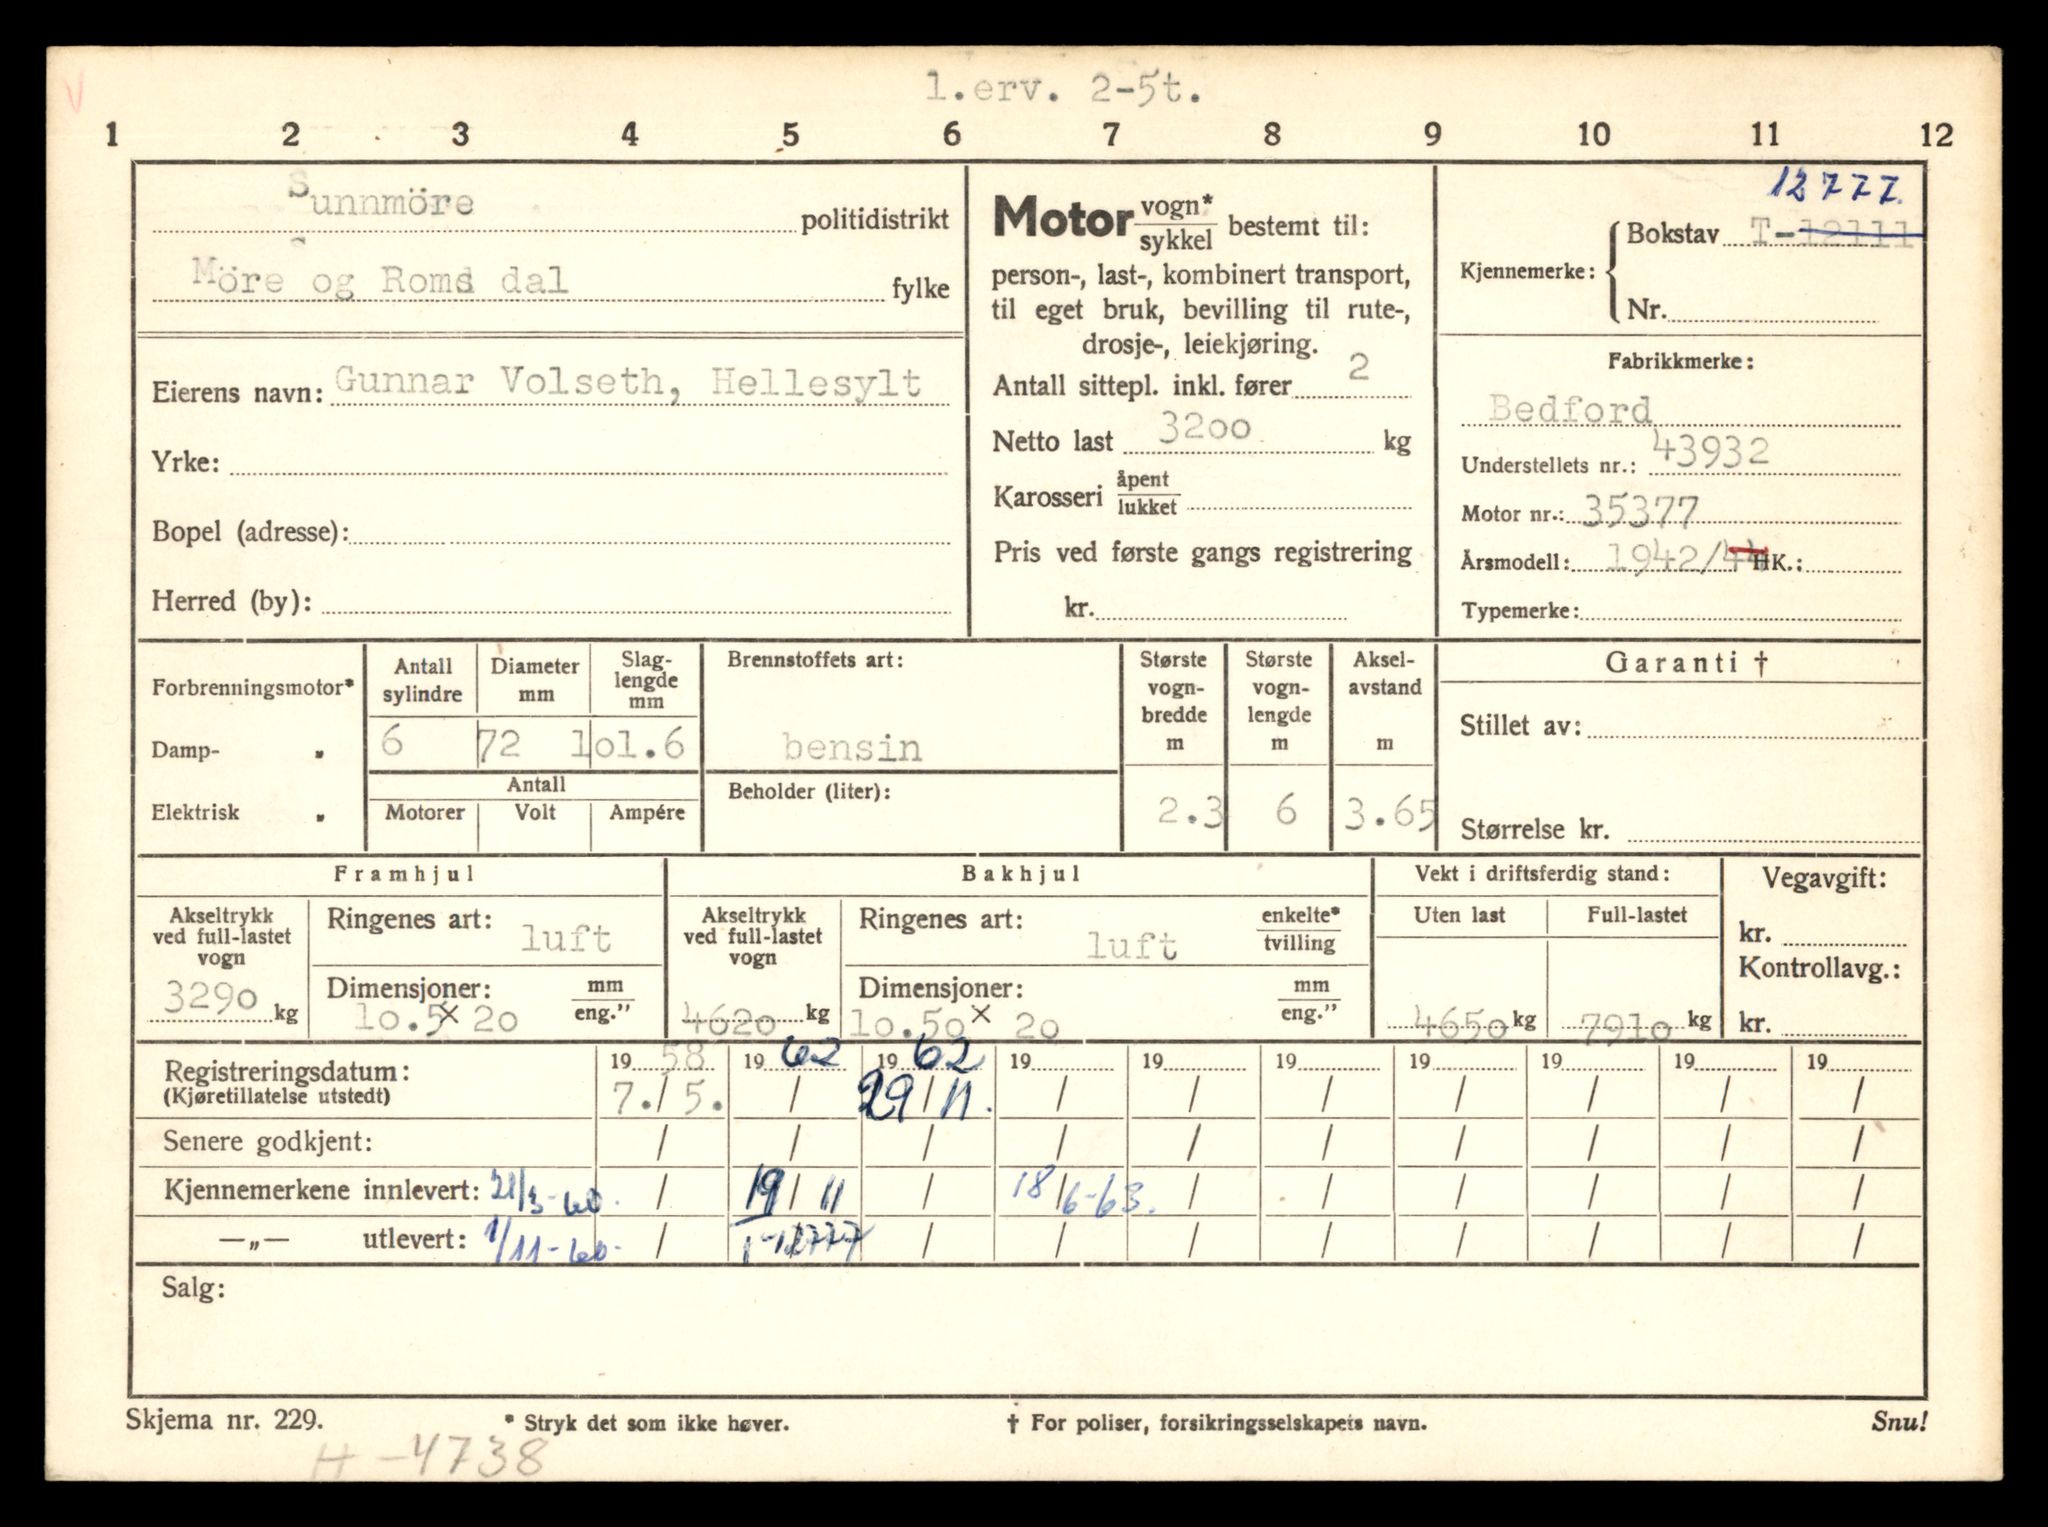 1.erv. 2-5t.
1 2 3 4 5 6 7 8 9 10 11 12
Sunnmöre politidistrikt
Möre og Roms dal fylke
Eierens navn: Gunnar Volseth, Hellesylt
Yrke:
Bopel (adresse):
Herred (by):
Motor vogn* / sykkel bestemt til:
person-, last-, kombinert transport,
til eget bruk, bevilling til rute-,
drosje-, leiekjøring.
Antall sittepl. inkl. fører 2
Netto last 3200 kg
Karosseri åpent / lukket
Pris ved første gangs registrering
kr.
12777.
Kjennemerke: Bokstav T-12111
Nr.
Fabrikkmerke:
Bedford
Understellets nr.: 43932
Motor nr.: 35377
Årsmodell: 1942/44 HK.:
Typemerke:
Forbrenningsmotor*
Damp- „
Elektrisk „
Antall sylindre
Diameter mm
Slag-
lengde
mm
6 72 101.6
Antall
Motorer Volt Ampére
Brennstoffets art:
bensin
Beholder (liter):
Største
vogn-
bredde
m
2.3
Største
vogn-
lengde
m
6
Aksel-
avstand
m
3.65
Garanti †
Stillet av:
Størrelse kr.
Framhjul
Akseltrykk
ved full-lastet
vogn
3290 kg
Ringenes art: luft
Dimensjoner: mm / eng.”
10.5 x 20
Bakhjul
Akseltrykk
ved full-lastet
vogn
4620 kg
Ringenes art: luft enkelte* / tvilling
Dimensjoner: mm / eng.”
10.50 x 20
Vekt i driftsferdig stand:
Uten last Full-lastet
4650 kg 7910 kg
Vegavgift:
kr.
Kontrollavg.:
kr.
Registreringsdatum: 19 58 19 62 19 62 19 19 19 19 19 19 19
(Kjøretillatelse utstedt) 7. / 5. / 29 / 11. / / / / / / /
Senere godkjent: / / / / / / / / / /
Kjennemerkene innlevert: 21/3-60. / 19 / 11 / 18/6-63. / / / / / /
—„— utlevert: 1/11-60- / -12777 / / / / / / / /
Salg:
Skjema nr. 229. * Stryk det som ikke høver. † For poliser, forsikringsselskapets navn. Snu!
H-4738